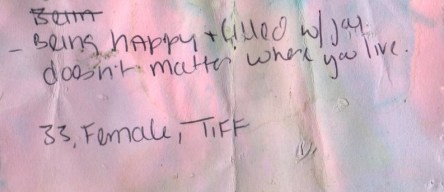 Bein
- Being happy + filled w/ joy.
doesn't matter where you live.
33, Female, TIFF